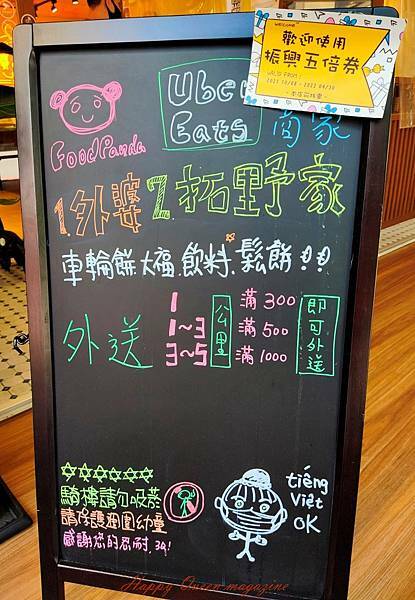 WELCOME
歡迎使用
振興五倍券
VALID FROM:
2021 10/08 - 2022 04/30
Uber
Eats 商家
FoodPanda
1.外婆 2.拓野家
車輪餅.大福.飲料.鬆餅!!
外送
1
1~3
3~5
公里
滿 300
滿 500
滿 1000
即可外送
騎樓請勿吸菸
請保護週圍幼童
感謝您的忍耐.39!
tiếng
Việt
OK
Happy Queen magazine